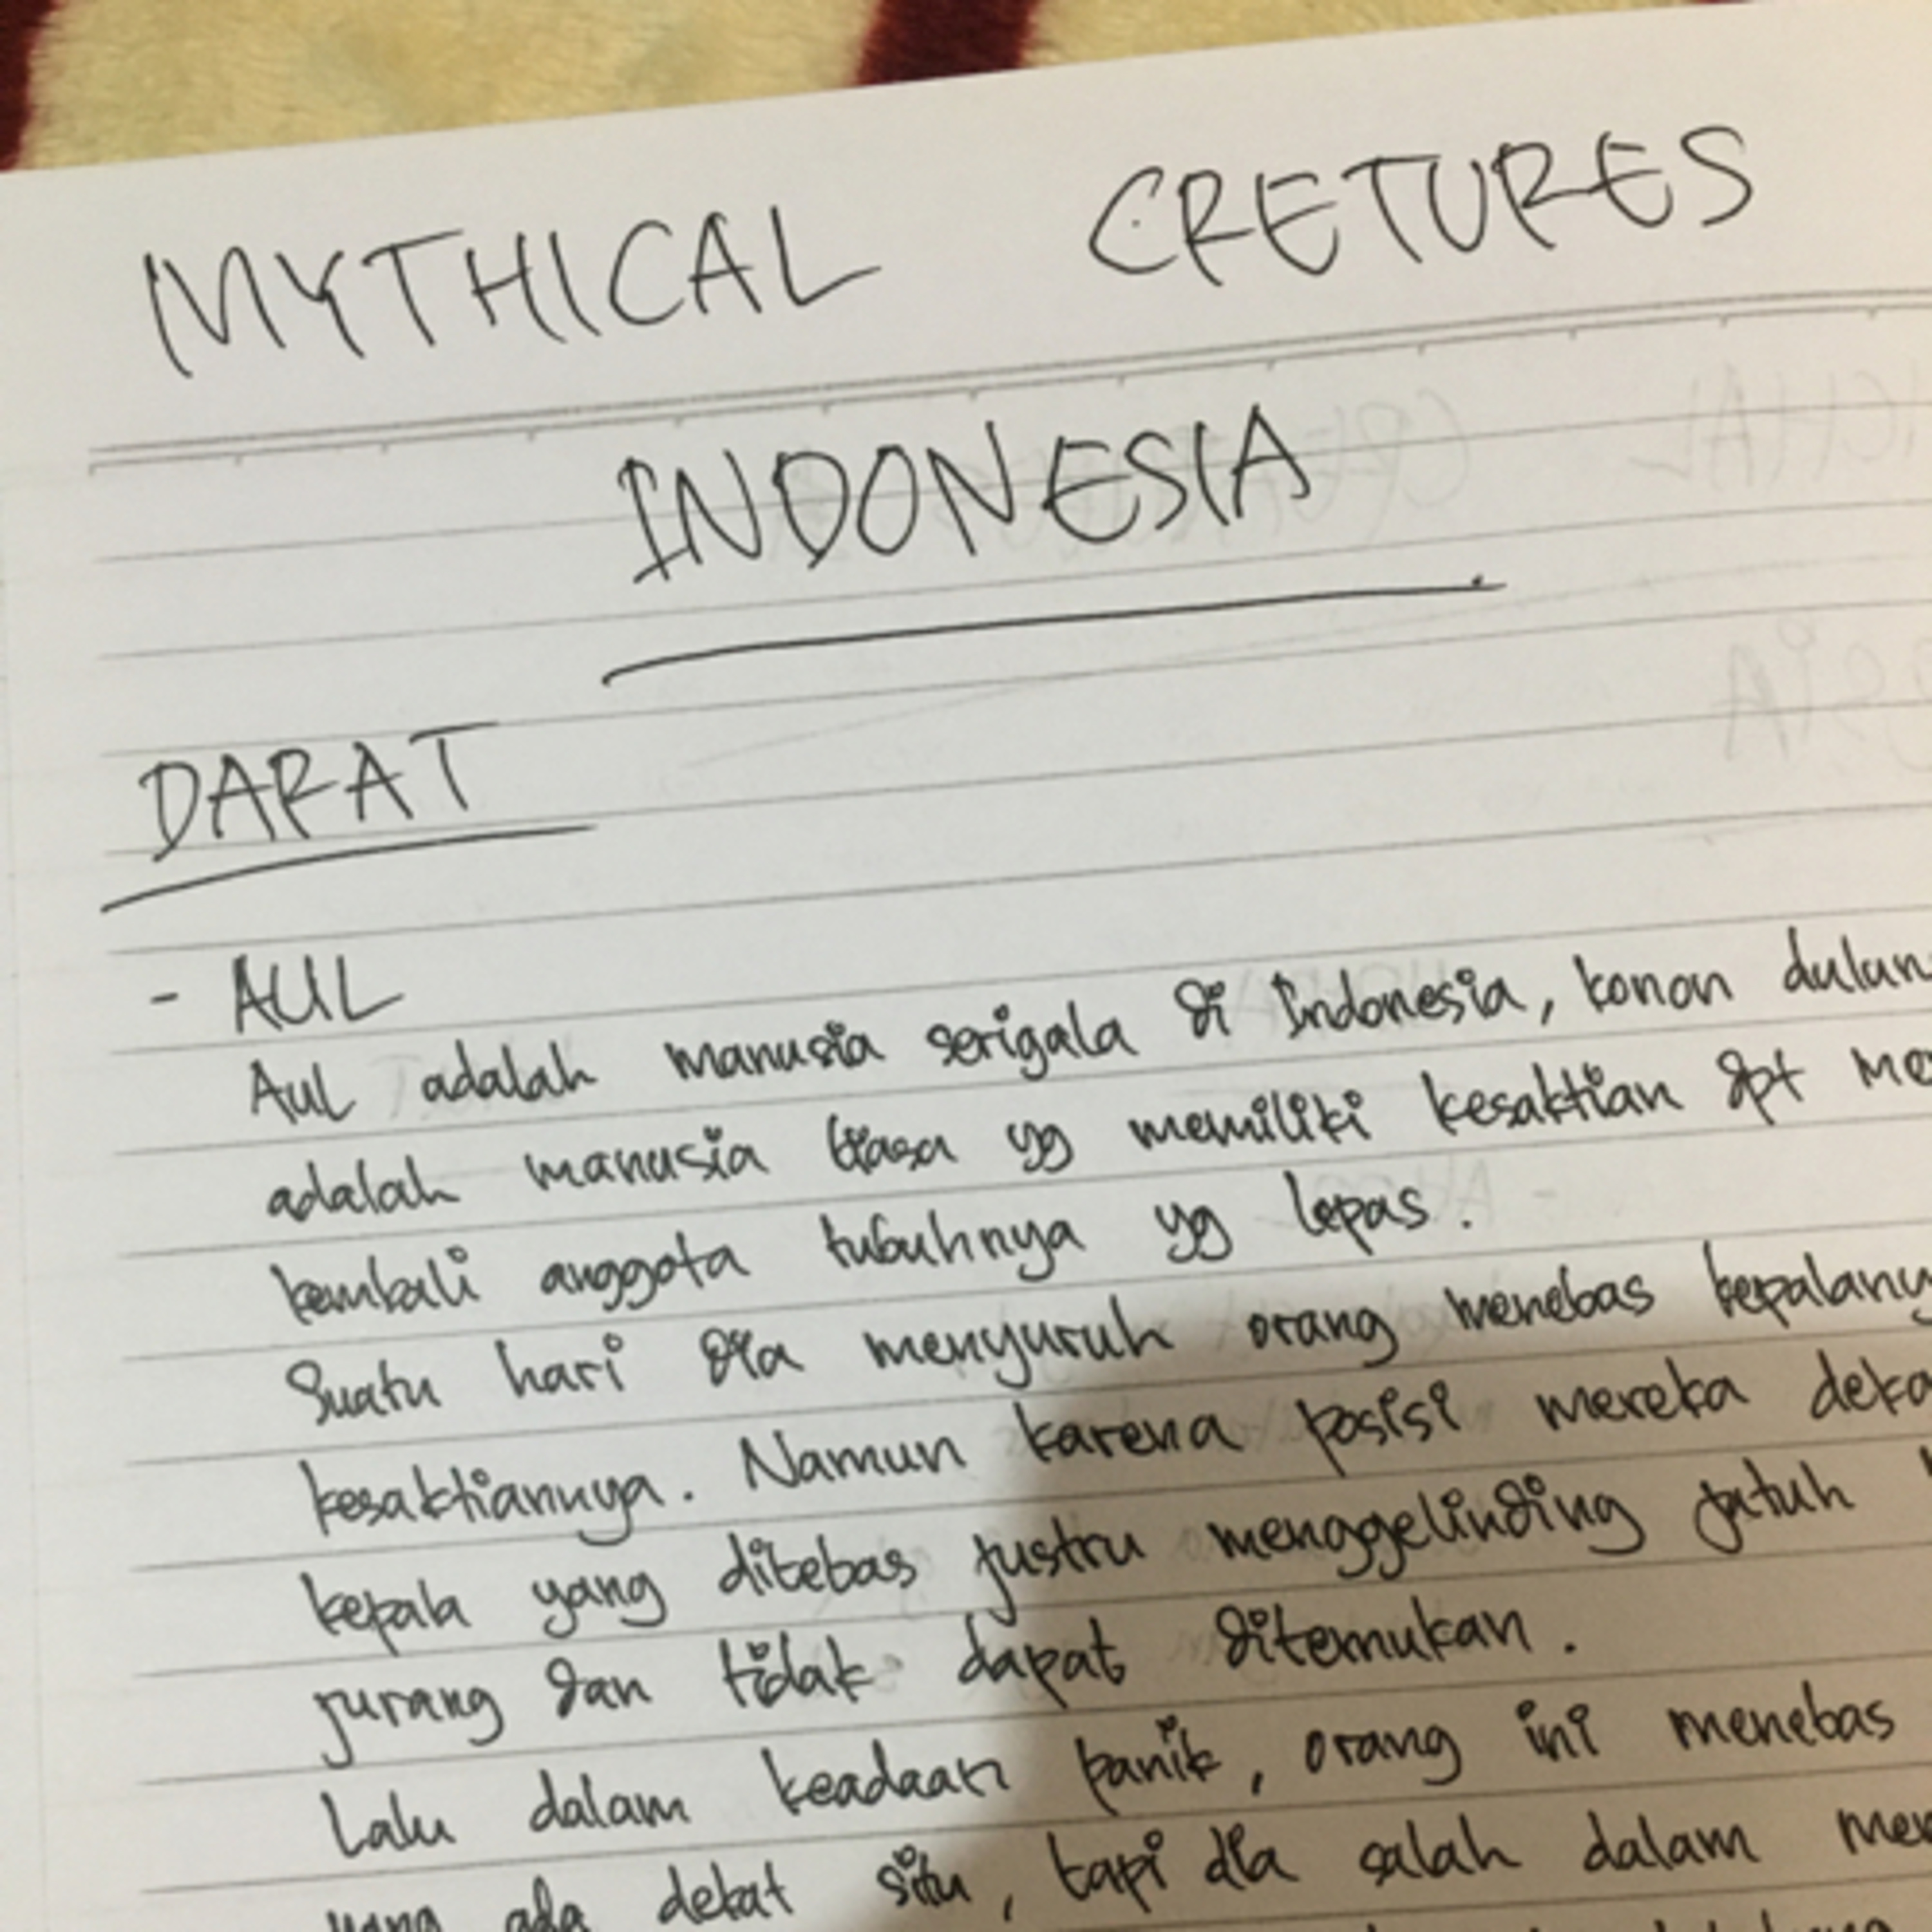 MYTHICAL CRETURES
INDONESIA
DARAT
- AUL
Aul adalah manusia serigala di Indonesia, konon dulun
adalah manusia biasa yg memiliki kesaktian dpt me
kembali anggota tubuhnya yg lepas.
Suatu hari dia menyuruh orang menebas kepalany
kesaktiannya. Namun karena posisi mereka deka
kepala yang ditebas justru menggelinding jatuh
jurang dan tidak dapat ditemukan.
Lalu dalam keadaan panik, orang ini menebas
yang ada dekat situ, tapi dia salah dalam me